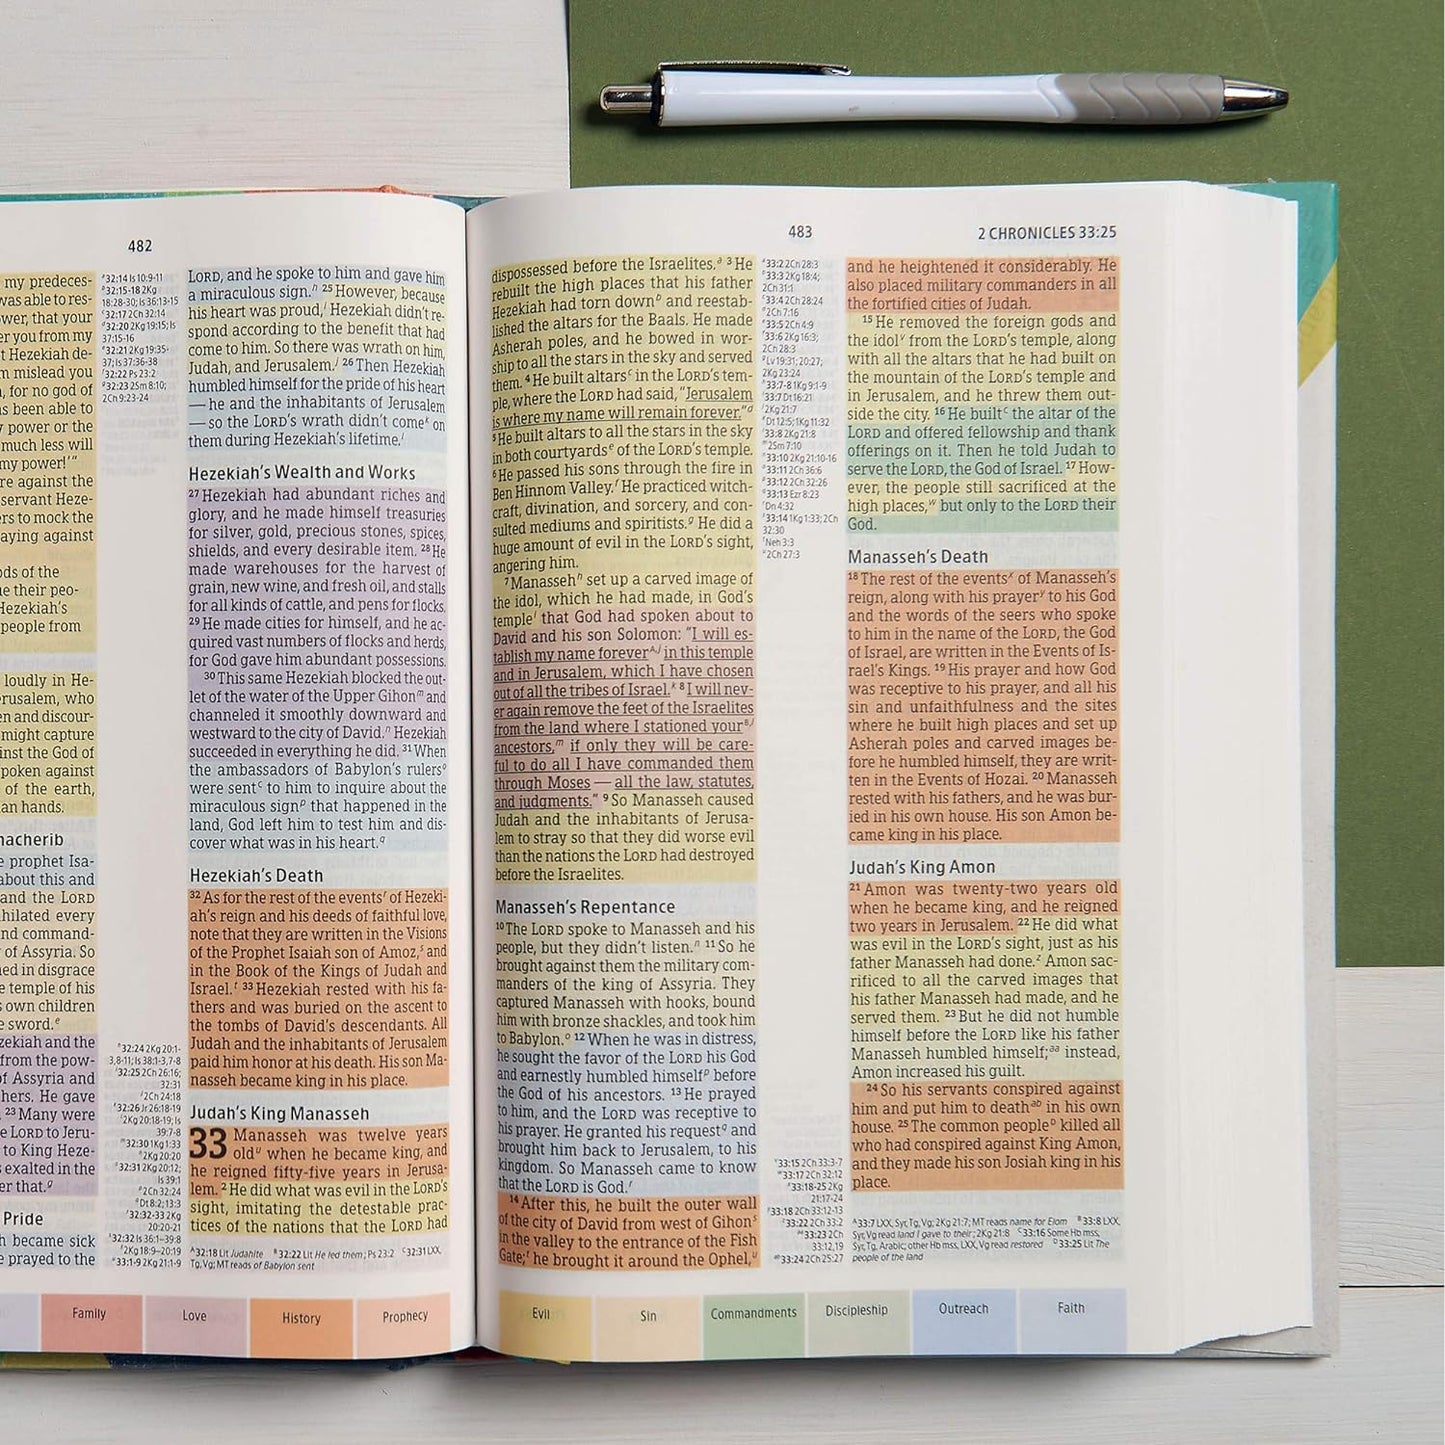 482
my predeces-
was able to res-
ower, that your
er you from my
t Hezekiah de-
m mislead you
, for no god of
s been able to
y power or the
much less will
my power!’”
re against the
servant Heze-
ers to mock the
aying against
ods of the
e their peo-
Hezekiah’s
people from
loudly in He-
erusalem, who
en and discour-
might capture
inst the God of
poken against
of the earth,
an hands.
nacherib
e prophet Isa-
about this and
and the LORD
ihilated every
nd command-
of Assyria. So
ned in disgrace
e temple of his
s own children
e sword.e
zekiah and the
from the pow-
of Assyria and
hers. He gave
23 Many were
e LORD to Jeru-
to King Heze-
s exalted in the
er that.g
Pride
h became sick
e prayed to the
32:14 Is 10:9-11
32:15-18 2Kg
18:28-30; Is 36:13-15
32:17 2Ch 32:14
32:20 2Kg 19:15; Is
37:15-16
32:21 2Kg 19:35-
37; Is 37:36-38
32:22 Ps 23:2
32:23 2Sm 8:10;
2Ch 9:23-24
32:24 2Kg 20:1-
3,8-11; Is 38:1-3,7-8
32:25 2Ch 26:16;
32:31
2Ch 24:18
32:26 Jr 26:18-19
2Kg 20:18-19; Is
39:7-8
32:30 1Kg 1:33
2Kg 20:20
32:31 2Kg 20:12;
Is 39:1
2Ch 32:24
Dt 8:2; 13:3
32:32-33 2Kg
20:20-21
32:32 Is 36:1–39:8
2Kg 18:9–20:19
33:1-9 2Kg 21:1-9
LORD, and he spoke to him and gave him
a miraculous sign.h 25 However, because
his heart was proud,i Hezekiah didn’t re-
spond according to the benefit that had
come to him. So there was wrath on him,
Judah, and Jerusalem.j 26 Then Hezekiah
humbled himself for the pride of his heart
— he and the inhabitants of Jerusalem
— so the LORD’s wrath didn’t comek on
them during Hezekiah’s lifetime.l
Hezekiah’s Wealth and Works
27 Hezekiah had abundant riches and
glory, and he made himself treasuries
for silver, gold, precious stones, spices,
shields, and every desirable item. 28 He
made warehouses for the harvest of
grain, new wine, and fresh oil, and stalls
for all kinds of cattle, and pens for flocks.
29 He made cities for himself, and he ac-
quired vast numbers of flocks and herds,
for God gave him abundant possessions.
30 This same Hezekiah blocked the out-
let of the water of the Upper Gihonm and
channeled it smoothly downward and
westward to the city of David.n Hezekiah
succeeded in everything he did. 31 When
the ambassadors of Babylon’s rulerso
were sentC to him to inquire about the
miraculous signp that happened in the
land, God left him to test him and dis-
cover what was in his heart.q
Hezekiah’s Death
32 As for the rest of the eventsr of Hezeki-
ah’s reign and his deeds of faithful love,
note that they are written in the Visions
of the Prophet Isaiah son of Amoz,s and
in the Book of the Kings of Judah and
Israel.t 33 Hezekiah rested with his fa-
thers and was buried on the ascent to
the tombs of David’s descendants. All
Judah and the inhabitants of Jerusalem
paid him honor at his death. His son Ma-
nasseh became king in his place.
Judah’s King Manasseh
33 Manasseh was twelve years
oldu when he became king, and
he reigned fifty-five years in Jerusa-
lem. 2 He did what was evil in the LORD’s
sight, imitating the detestable prac-
tices of the nations that the LORD had
A32:18 Lit Judahite B32:22 Lit He led them; Ps 23:2 C32:31 LXX,
Tg, Vg; MT reads of Babylon sent
Family
Love
History
Prophecy
483
2 CHRONICLES 33:25
dispossessed before the Israelites.a 3 He
rebuilt the high places that his father
Hezekiah had torn downb and reestab-
lished the altars for the Baals. He made
Asherah poles, and he bowed in wor-
ship to all the stars in the sky and served
them. 4 He built altarsc in the LORD’s tem-
ple, where the LORD had said, “Jerusalem
is where my name will remain forever.”d
5 He built altars to all the stars in the sky
in both courtyardse of the LORD’s temple.
6 He passed his sons through the fire in
Ben Hinnom Valley.f He practiced witch-
craft, divination, and sorcery, and con-
sulted mediums and spiritists.g He did a
huge amount of evil in the LORD’s sight,
angering him.
7 Manassehh set up a carved image of
the idol, which he had made, in God’s
templei that God had spoken about to
David and his son Solomon: “I will es-
tablish my name foreverA,j in this temple
and in Jerusalem, which I have chosen
out of all the tribes of Israel.k 8 I will nev-
er again remove the feet of the Israelites
from the land where I stationed yourB,l
ancestors,m if only they will be care-
ful to do all I have commanded them
through Moses — all the law, statutes,
and judgments.” 9 So Manasseh caused
Judah and the inhabitants of Jerusa-
lem to stray so that they did worse evil
than the nations the LORD had destroyed
before the Israelites.
Manasseh’s Repentance
10 The LORD spoke to Manasseh and his
people, but they didn’t listen.n 11 So he
brought against them the military com-
manders of the king of Assyria. They
captured Manasseh with hooks, bound
him with bronze shackles, and took him
to Babylon.o 12 When he was in distress,
he sought the favor of the LORD his God
and earnestly humbled himselfp before
the God of his ancestors. 13 He prayed
to him, and the LORD was receptive to
his prayer. He granted his requestq and
brought him back to Jerusalem, to his
kingdom. So Manasseh came to know
that the LORD is God.r
14 After this, he built the outer wall
of the city of David from west of Gihons
in the valley to the entrance of the Fish
Gate;t he brought it around the Ophel,u
33:2 2Ch 28:3
33:3 2Kg 18:4;
2Ch 31:1
33:4 2Ch 28:24
2Ch 7:16
33:5 2Ch 4:9
33:6 2Kg 16:3;
2Ch 28:3
Lv 19:31; 20:27;
2Kg 23:24
33:7-8 1Kg 9:1-9
33:7 Dt 16:21
2Kg 21:7
Dt 12:5; 1Kg 11:32
33:8 2Kg 21:8
2Sm 7:10
33:10 2Kg 21:10-16
33:11 2Ch 36:6
33:12 2Ch 32:26
33:13 Ezr 8:23
Dn 4:32
33:14 1Kg 1:33; 2Ch
32:30
Neh 3:3
2Ch 27:3
33:15 2Ch 33:3-7
33:17 2Ch 32:12
33:18-25 2Kg
21:17-24
33:18 2Ch 33:12-13
33:22 2Ch 33:2
33:23 2Ch
33:12,19
33:24 2Ch 25:27
and he heightened it considerably. He
also placed military commanders in all
the fortified cities of Judah.
15 He removed the foreign gods and
the idolv from the LORD’s temple, along
with all the altars that he had built on
the mountain of the LORD’s temple and
in Jerusalem, and he threw them out-
side the city. 16 He builtC the altar of the
LORD and offered fellowship and thank
offerings on it. Then he told Judah to
serve the LORD, the God of Israel. 17 How-
ever, the people still sacrificed at the
high places,w but only to the LORD their
God.
Manasseh’s Death
18 The rest of the eventsx of Manasseh’s
reign, along with his prayery to his God
and the words of the seers who spoke
to him in the name of the LORD, the God
of Israel, are written in the Events of Is-
rael’s Kings. 19 His prayer and how God
was receptive to his prayer, and all his
sin and unfaithfulness and the sites
where he built high places and set up
Asherah poles and carved images be-
fore he humbled himself, they are writ-
ten in the Events of Hozai. 20 Manasseh
rested with his fathers, and he was bur-
ied in his own house. His son Amon be-
came king in his place.
Judah’s King Amon
21 Amon was twenty-two years old
when he became king, and he reigned
two years in Jerusalem. 22 He did what
was evil in the LORD’s sight, just as his
father Manasseh had done.z Amon sac-
rificed to all the carved images that
his father Manasseh had made, and he
served them. 23 But he did not humble
himself before the LORD like his father
Manasseh humbled himself;aa instead,
Amon increased his guilt.
24 So his servants conspired against
him and put him to deathab in his own
house. 25 The common peopleD killed all
who had conspired against King Amon,
and they made his son Josiah king in his
place.
A33:7 LXX, Syr, Tg, Vg; 2Kg 21:7; MT reads name for Elom B33:8 LXX,
Syr, Vg read land I gave to their; 2Kg 21:8 C33:16 Some Hb mss,
Syr, Tg, Arabic; other Hb mss, LXX, Vg read restored D33:25 Lit The
people of the land
Evil
Sin
Commandments
Discipleship
Outreach
Faith